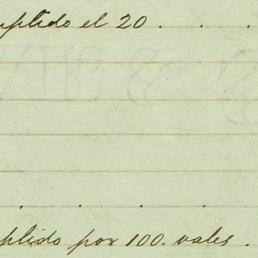 uplido el 20 . . .
. . . .
plido por 100. vales .